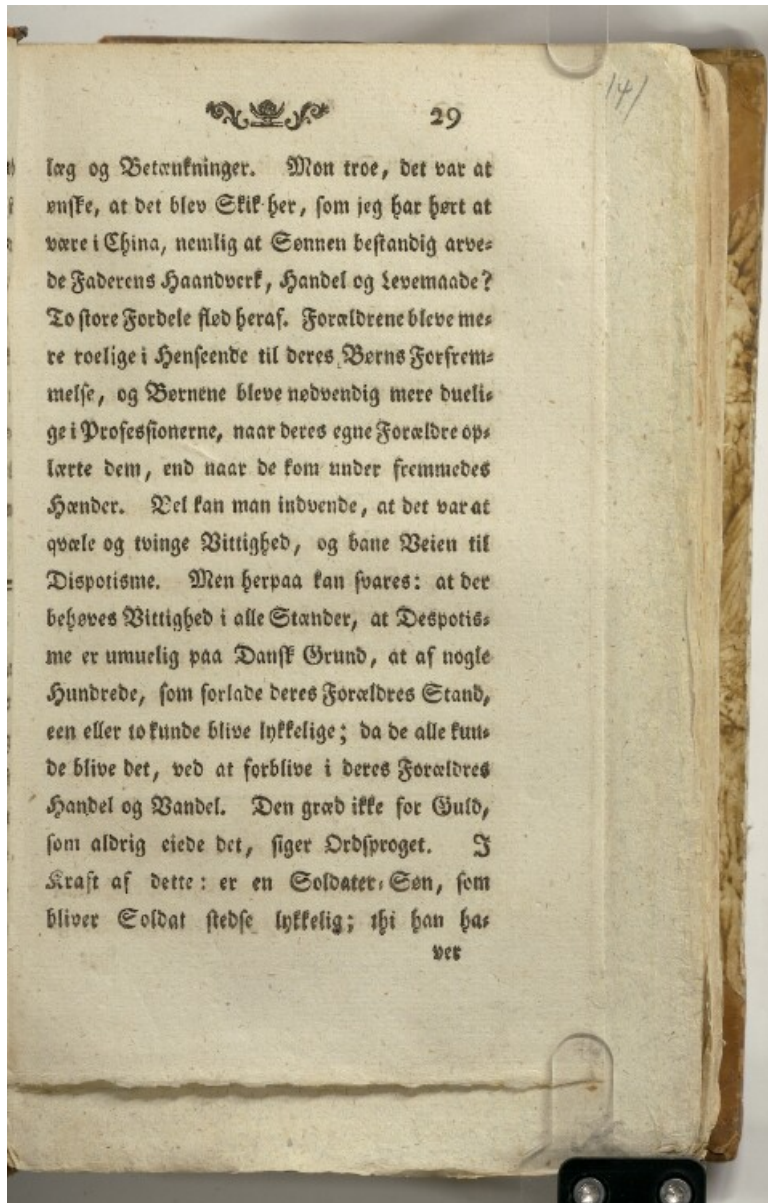 29
141
læg og Betænkninger. Mon troe, det var at
ønske, at det blev Skik her, som jeg har hørt at
være i China, nemlig at Sønnen bestandig arve-
de Faderens Haandverk, Handel og Levemaade?
To store Fordele flød heraf. Forældrene bleve me-
re roelige i Henseende til deres Børns Forfrem-
melse, og Børnene bleve nødvendig mere dueli-
ge i Professionerne, naar deres egne Forældre op-
lærte dem, end naar de kom under fremmedes
Hænder. Vel kan man indvende, at det var at
qvæle og tvinge Vittighed, og bane Veien til
Dispotisme. Men herpaa kan svares: at der
behøves Vittighed i alle Stænder, at Despotis-
me er umuelig paa Dansk Grund, at af nogle
Hundrede, som forlade deres Forældres Stand,
een eller to kunde blive lykkelige; da de alle kun-
de blive det, ved at forblive i deres Forældres
Handel og Vandel. Den græd ikke for Guld,
som aldrig eiede det, siger Ordsproget. I
Kraft af dette: er en Soldater-Søn, som
bliver Soldat stedse lykkelig; thi han ha-
ver